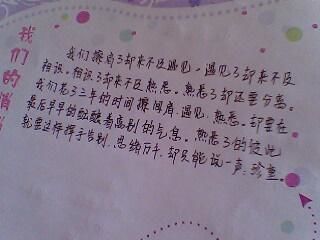 我们擦肩了却来不及遇见，遇见了却来不及
相识。相识了却来不及熟悉。熟悉了却还要分离。
我们花了三年的时间擦间肩，遇见，熟悉。却要在
最后早早的就散着离别的气息。熟悉了的彼此
就要这样挥手告别，思绪万千，却只能说一声：珍重。
我们的消